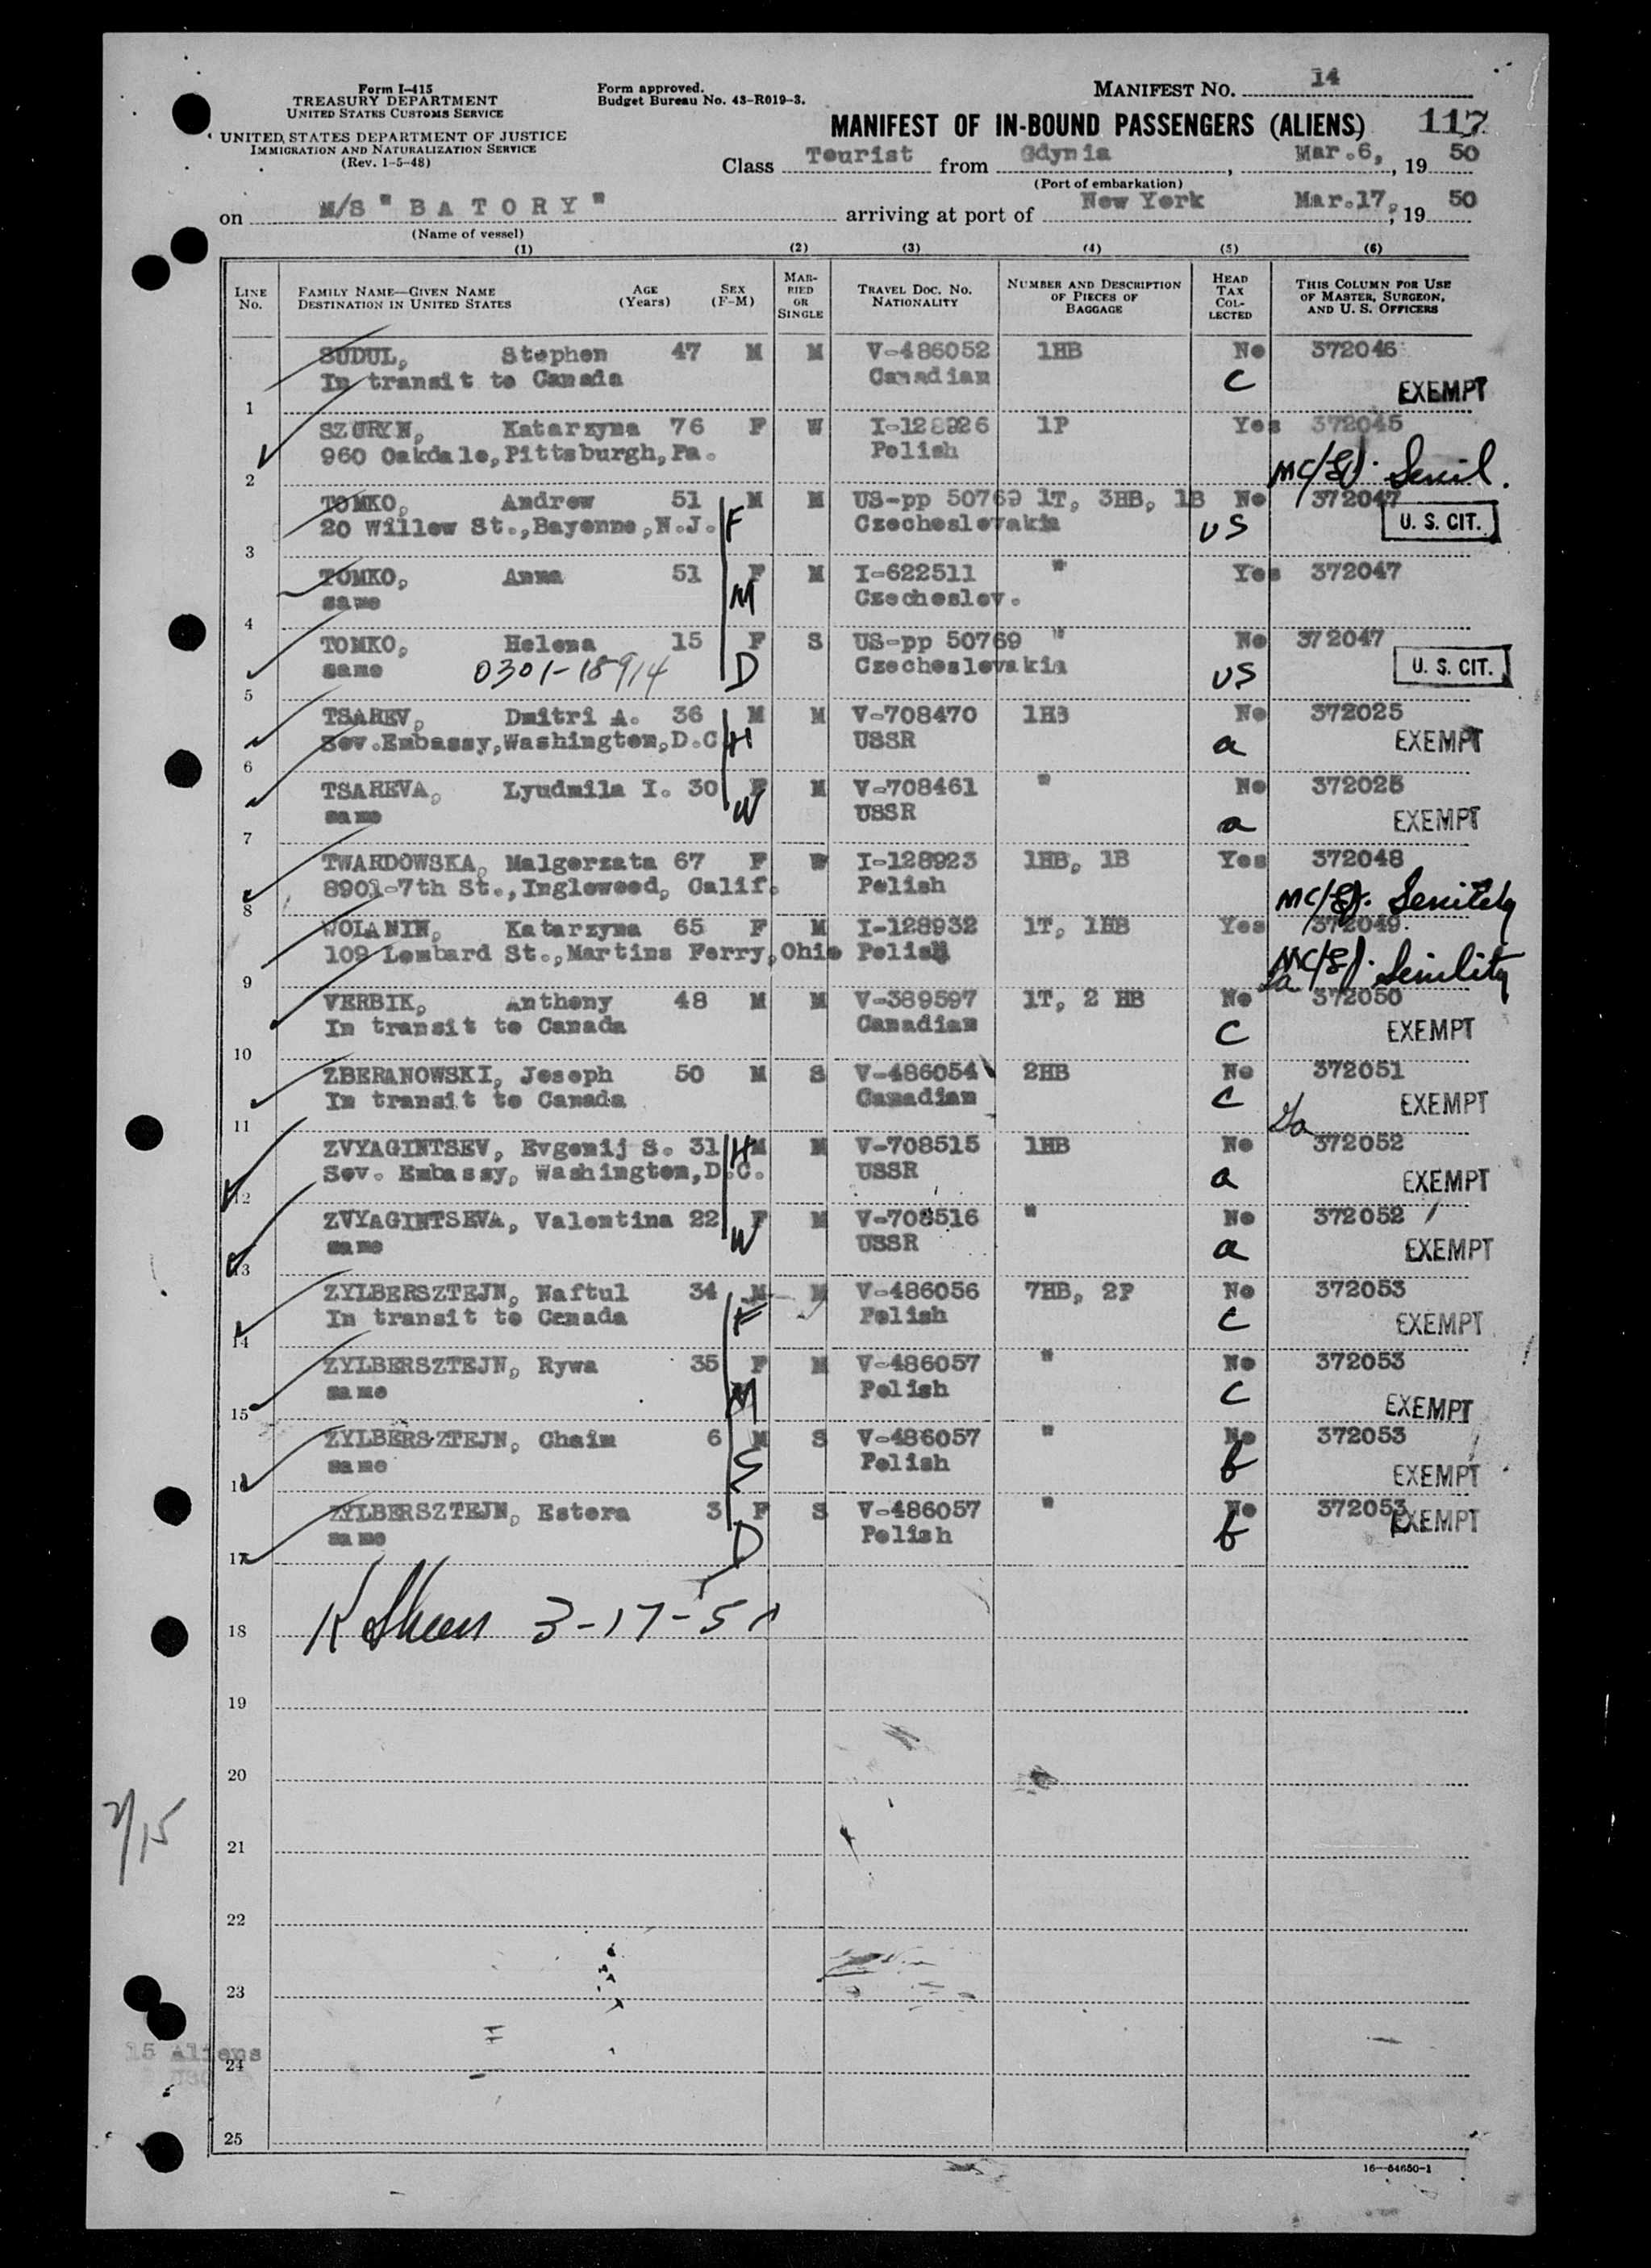 Form I-415
TREASURY DEPARTMENT
UNITED STATES CUSTOMS SERVICE
UNITED STATES DEPARTMENT OF JUSTICE
IMMIGRATION AND NATURALIZATION SERVICE
(Rev. 1-5-48)
Form approved.
Budget Bureau No. 43-R019-3.
MANIFEST NO. 14
MANIFEST OF IN-BOUND PASSENGERS (ALIENS) 117
Class Tourist from Gdynia, Mar.6, 1950
(Port of embarkation)
on M/S "BATORY" arriving at port of New York Mar.17, 1950
(Name of vessel)
(1) (2) (3) (4) (5) (6)
LINE NO. FAMILY NAME—GIVEN NAME DESTINATION IN UNITED STATES AGE (Years) SEX (F-M) MARRIED OR SINGLE TRAVEL DOC. NO. NATIONALITY NUMBER AND DESCRIPTION OF PIECES OF BAGGAGE HEAD TAX COLLECTED THIS COLUMN FOR USE OF MASTER, SURGEON, AND U. S. OFFICERS
SUDUL, Stephen 47 M M V-486052 1HB No 372046
In transit to Canada Canadian C EXEMPT
1
SZURYN, Katarzyna 76 F W I-128926 1P Yes 372045
960 Oakdale, Pittsburgh, Pa. Polish
2
TOMKO, Andrew 51 M M US-pp 50769 1T, 3HB, 1B No 372047
20 Willow St., Bayonne, N.J. F Czechoslovakia US U. S. CIT.
3
TOMKO, Anna 51 F M I-622511 " Yes 372047
same M Czechoslov.
4
TOMKO, Helena 15 F S US-pp 50769 " No 372047
same 0301-18914 D Czechoslovakia US U. S. CIT.
5
TSAREV, Dmitri A. 36 M M V-708470 1HB No 372025
Sov.Embassy, Washington, D.C H USSR a EXEMPT
6
TSAREVA, Lyudmila I. 30 F M V-708461 " No 372025
same W USSR a EXEMPT
7
TWARDOWSKA, Malgorzata 67 F W I-128923 1HB, 1B Yes 372048
8901-7th St., Inglewood, Calif. Polish
8 MC/ Senility
WOLANIN, Katarzyna 65 F M I-128932 1T, 1HB Yes 372049
109 Lombard St., Martins Ferry, Ohio Polish
9 MC/ Senility
VERBIK, Anthony 48 M M V-389597 1T, 2 HB No 372050
In transit to Canada Canadian C EXEMPT
10
ZBERANOWSKI, Joseph 50 M S V-486054 2HB No 372051
In transit to Canada Canadian C EXEMPT
11
ZVYAGINTSEV, Evgenij S. 31 H M M V-708515 1HB No 372052
Sov. Embassy, Washington, D.C. USSR a EXEMPT
12
ZVYAGINTSEVA, Valentina 22 F M V-708516 " No 372052
same W USSR a EXEMPT
13
ZYLBERSZTEJN, Naftul 34 M M V-486056 7HB, 2P No 372053
In transit to Canada F Polish C EXEMPT
14
ZYLBERSZTEJN, Rywa 35 F M V-486057 " No 372053
same M Polish C EXEMPT
15
ZYLBERSZTEJN, Chaim 6 M S V-486057 " No 372053
same S Polish b EXEMPT
16
ZYLBERSZTEJN, Estera 3 F S V-486057 " No 372053 EXEMPT
same D Polish b
17
3-17-50
18
19
20
2/15
21
22
23
15 Aliens
24
25
16—54650-1